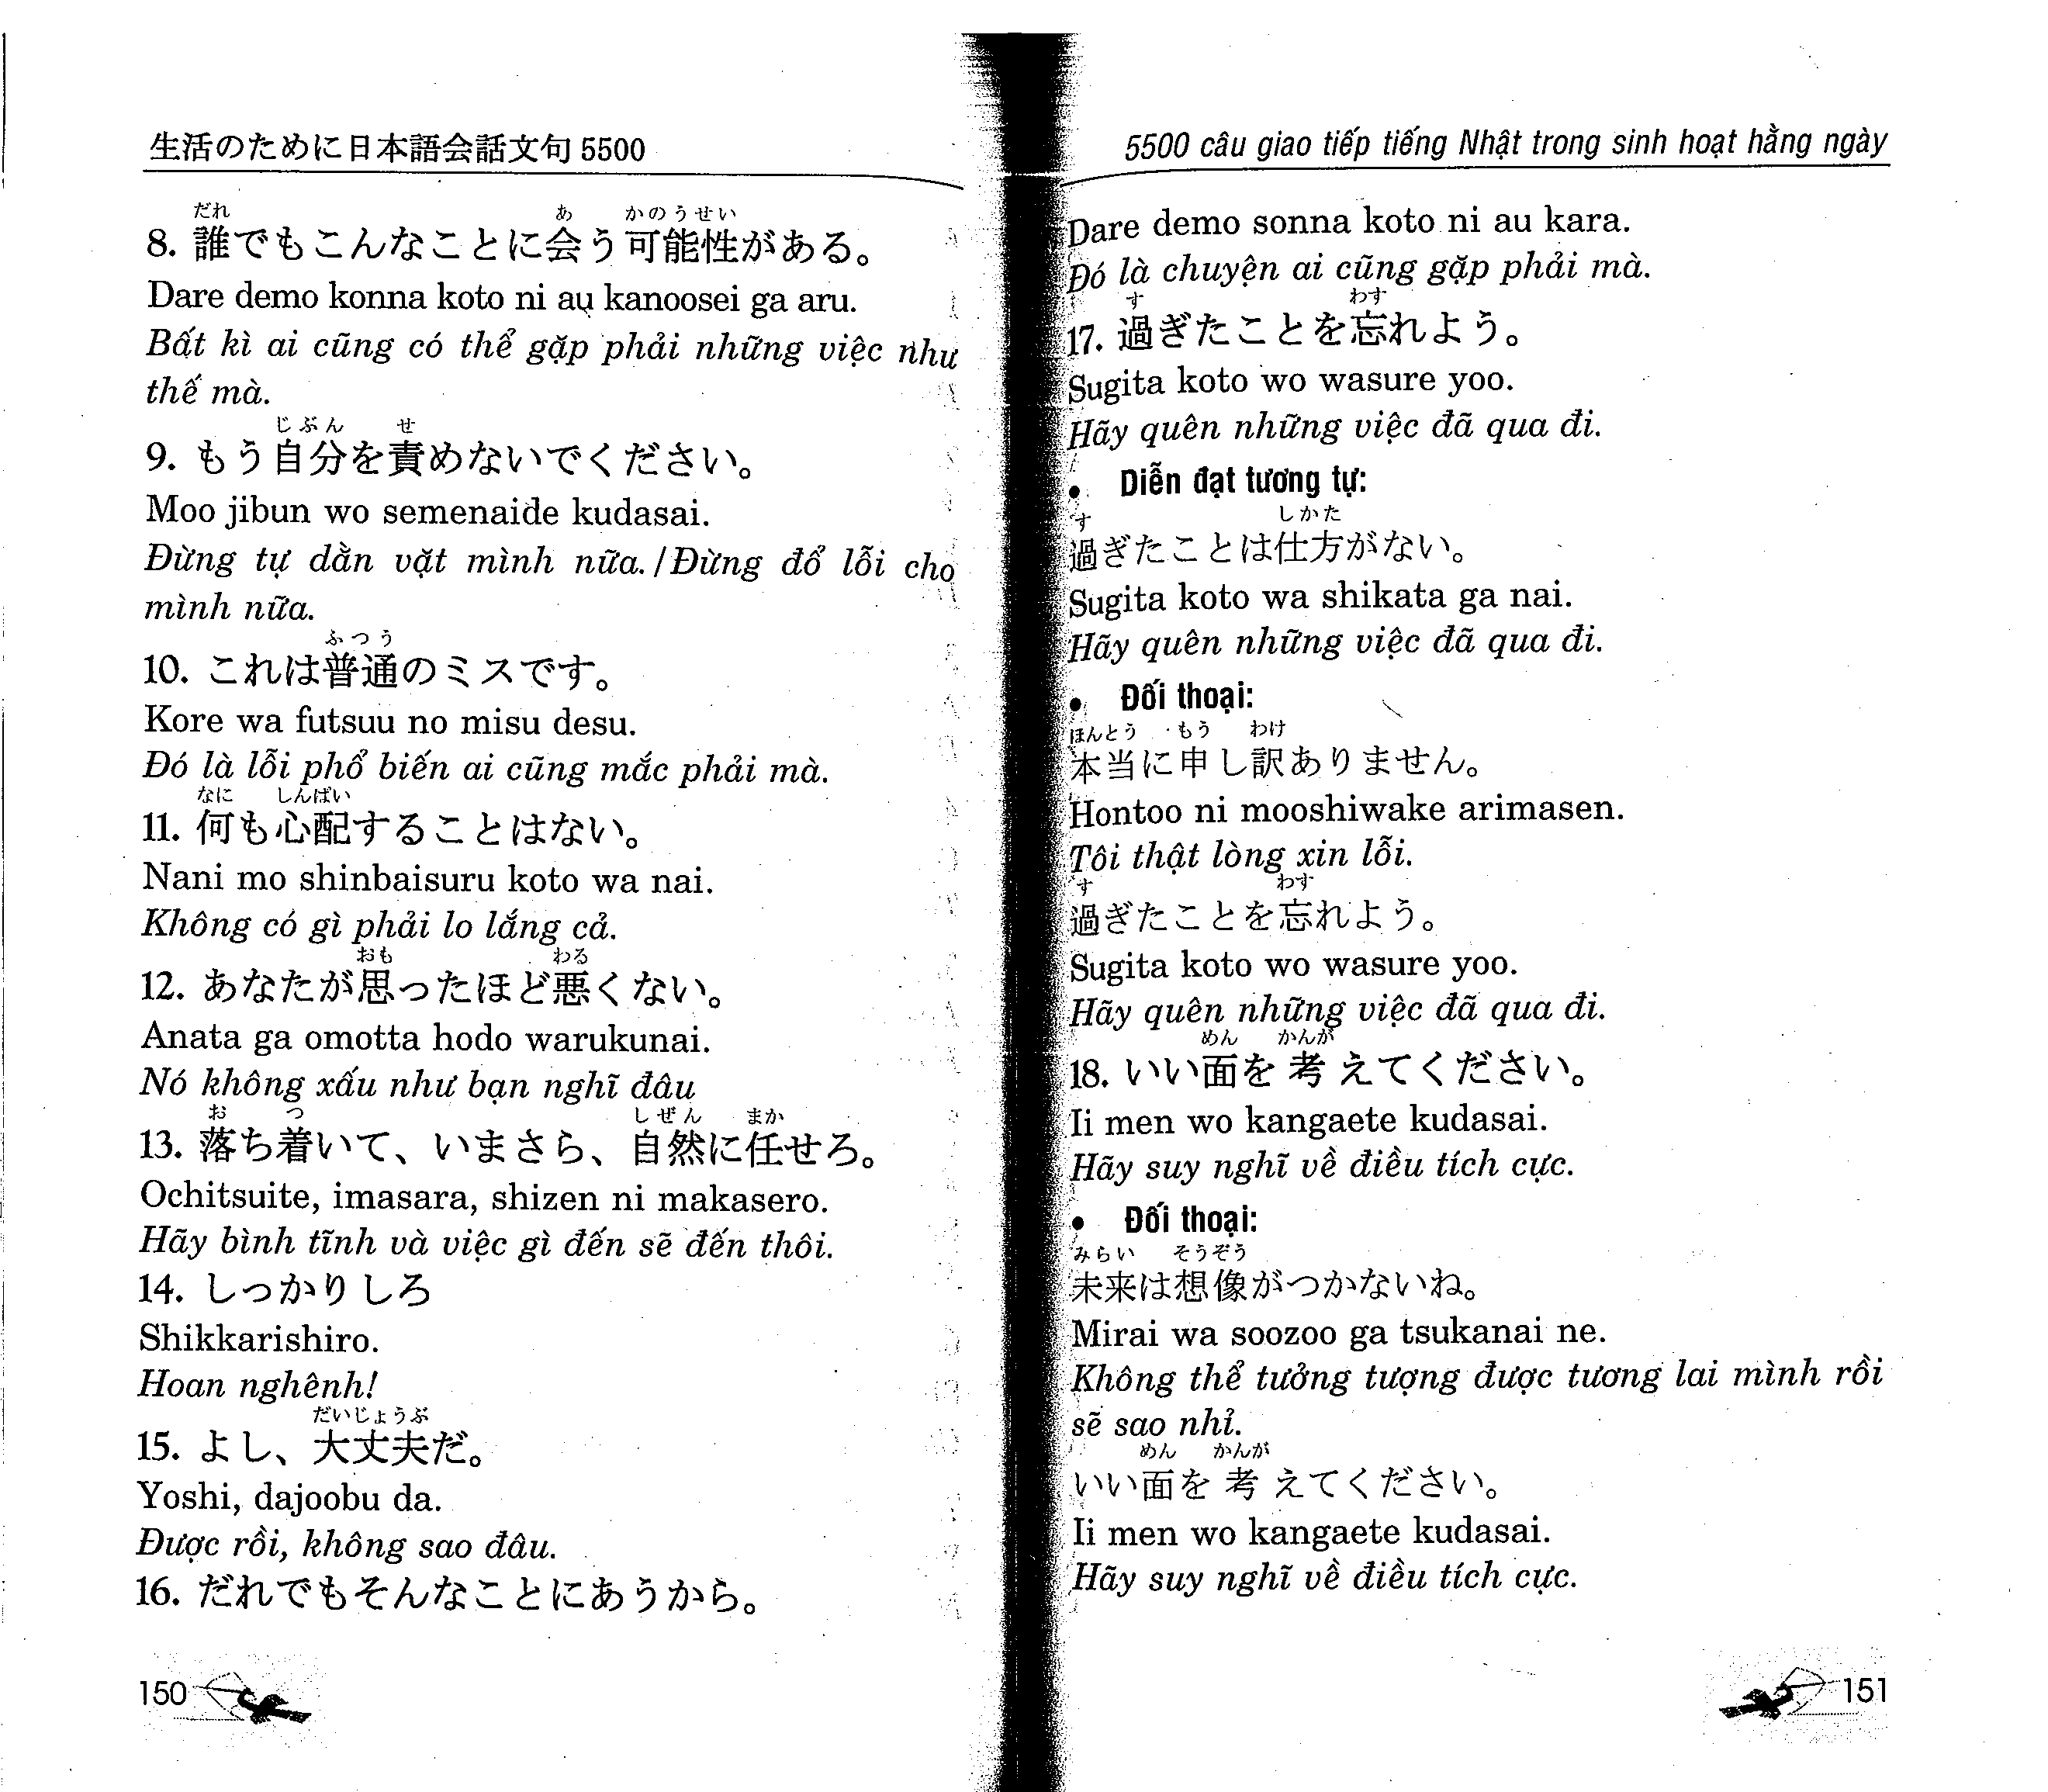 生活のために日本語会話文句 5500
だれ あ かのうせい
8. 誰でもこんなことに会う可能性がある。
Dare demo konna koto ni au kanoosei ga aru.
Bất kì ai cũng có thể gặp phải những việc như
thế mà.
じぶん せ
9. もう自分を責めないでください。
Moo jibun wo semenaide kudasai.
Đừng tự dằn vặt mình nữa. / Đừng đổ lỗi cho
mình nữa.
ふつう
10. これは普通のミスです。
Kore wa futsuu no misu desu.
Đó là lỗi phổ biến ai cũng mắc phải mà.
なに しんぱい
11. 何も心配することはない。
Nani mo shinbaisuru koto wa nai.
Không có gì phải lo lắng cả.
おも わる
12. あなたが思ったほど悪くない。
Anata ga omotta hodo warukunai.
Nó không xấu như bạn nghĩ đâu
お つ しぜん まか
13. 落ち着いて、いまさら、自然に任せろ。
Ochitsuite, imasara, shizen ni makasero.
Hãy bình tĩnh và việc gì đến sẽ đến thôi.
14. しっかりしろ
Shikkarishiro.
Hoan nghênh!
だいじょうぶ
15. よし、大丈夫だ。
Yoshi, dajoobu da.
Được rồi, không sao đâu.
16. だれでもそんなことにあうから。
150
5500 câu giao tiếp tiếng Nhật trong sinh hoạt hằng ngày
Dare demo sonna koto ni au kara.
Đó là chuyện ai cũng gặp phải mà.
す わす
17. 過ぎたことを忘れよう。
Sugita koto wo wasure yoo.
Hãy quên những việc đã qua đi.
• Diễn đạt tương tự:
す しかた
過ぎたことは仕方がない。
Sugita koto wa shikata ga nai.
Hãy quên những việc đã qua đi.
• Đối thoại:
ほんとう もう わけ
本当に申し訳ありません。
Hontoo ni mooshiwake arimasen.
Tôi thật lòng xin lỗi.
す わす
過ぎたことを忘れよう。
Sugita koto wo wasure yoo.
Hãy quên những việc đã qua đi.
めん かんが
18. いい面を考えてください。
Ii men wo kangaete kudasai.
Hãy suy nghĩ về điều tích cực.
• Đối thoại:
みらい そうぞう
未来は想像がつかないね。
Mirai wa soozoo ga tsukanai ne.
Không thể tưởng tượng được tương lai mình rồi
sẽ sao nhỉ.
めん かんが
いい面を考えてください。
Ii men wo kangaete kudasai.
Hãy suy nghĩ về điều tích cực.
151